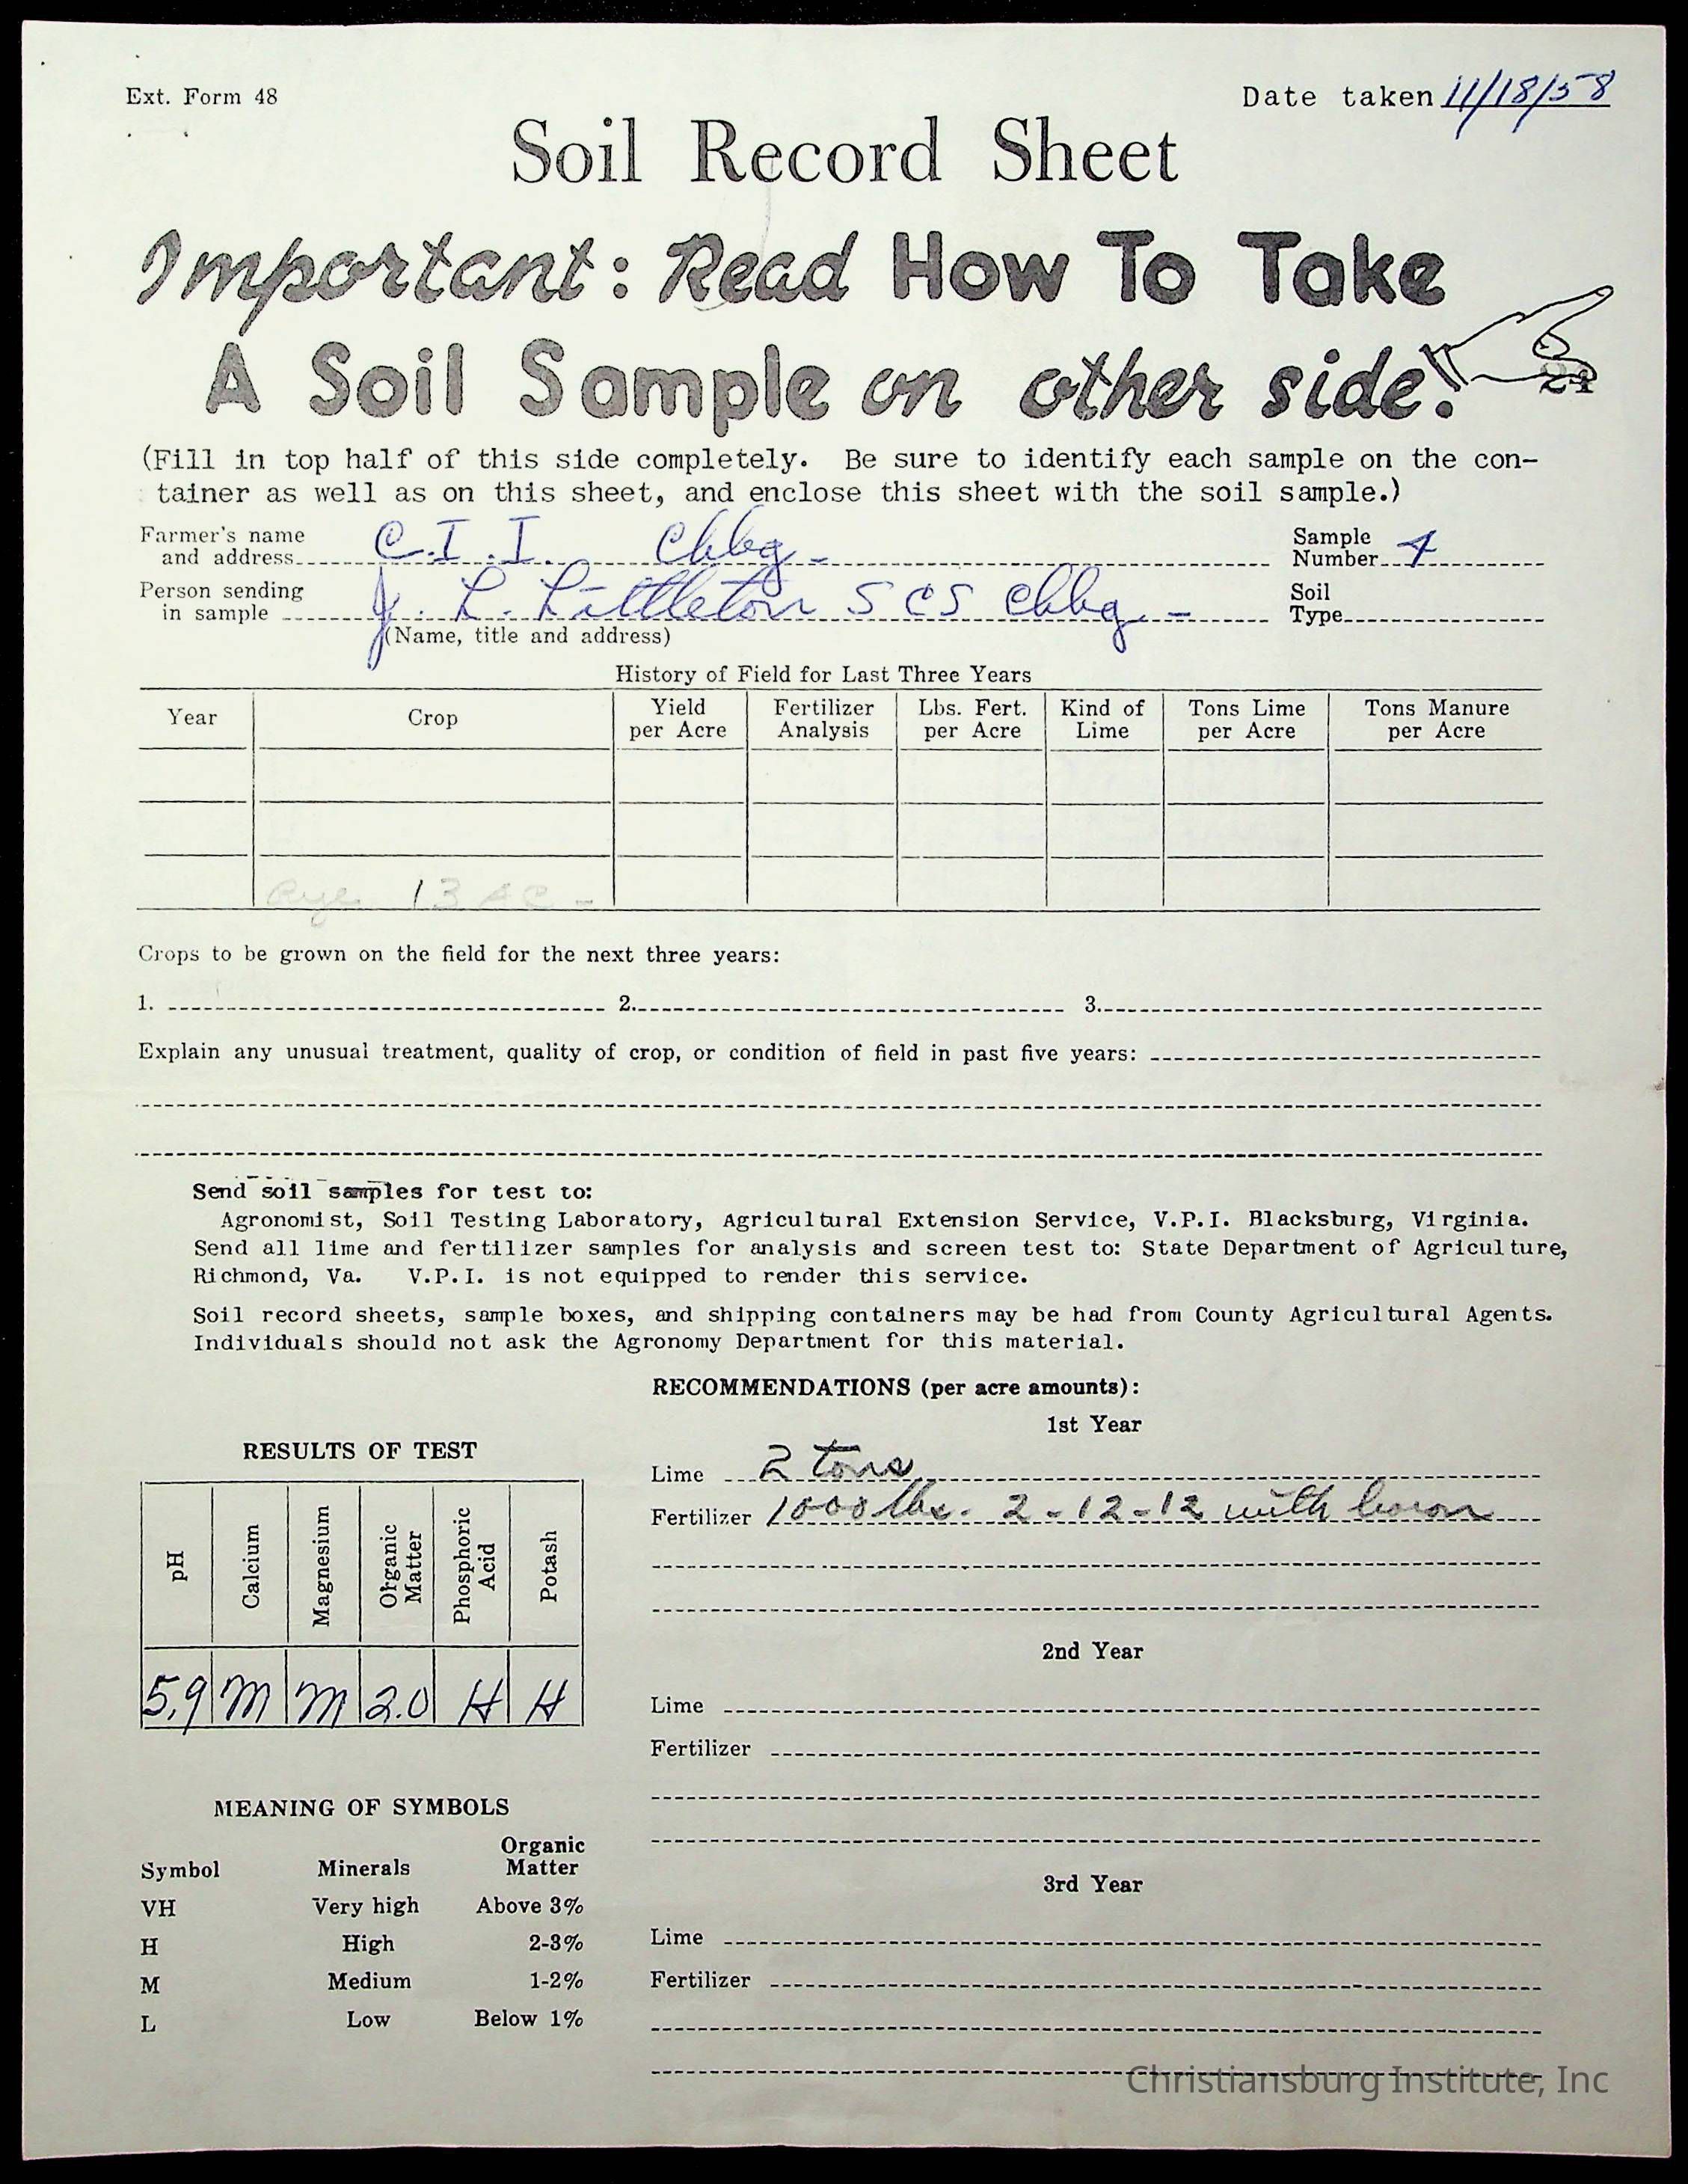 Ext. Form 48
Date taken 11/18/58
Soil Record Sheet
Important: Read How To Take
A Soil Sample on other side.
(Fill in top half of this side completely. Be sure to identify each sample on the con-
tainer as well as on this sheet, and enclose this sheet with the soil sample.)
Farmer's name
and address C.I.I. Chbg -
Sample
Number 4
Person sending
in sample J. L. Littleton SCS Chbg. -
Soil
Type
(Name, title and address)
History of Field for Last Three Years
Year Crop Yield per Acre Fertilizer Analysis Lbs. Fert. per Acre Kind of Lime Tons Lime per Acre Tons Manure per Acre
Rye 13 AC -
Crops to be grown on the field for the next three years:
1. 2. 3.
Explain any unusual treatment, quality of crop, or condition of field in past five years:
Send soil samples for test to:
Agronomist, Soil Testing Laboratory, Agricultural Extension Service, V.P.I. Blacksburg, Virginia.
Send all lime and fertilizer samples for analysis and screen test to: State Department of Agriculture,
Richmond, Va. V.P.I. is not equipped to render this service.
Soil record sheets, sample boxes, and shipping containers may be had from County Agricultural Agents.
Individuals should not ask the Agronomy Department for this material.
RESULTS OF TEST
pH Calcium Magnesium Organic Matter Phosphoric Acid Potash
5.9 M M 2.0 H H
MEANING OF SYMBOLS
Symbol Minerals Organic Matter
VH Very high Above 3%
H High 2-3%
M Medium 1-2%
L Low Below 1%
RECOMMENDATIONS (per acre amounts):
1st Year
Lime 2 tons
Fertilizer 1000 lbs. 2-12-12 with boron
2nd Year
Lime
Fertilizer
3rd Year
Lime
Fertilizer
Christiansburg Institute, Inc